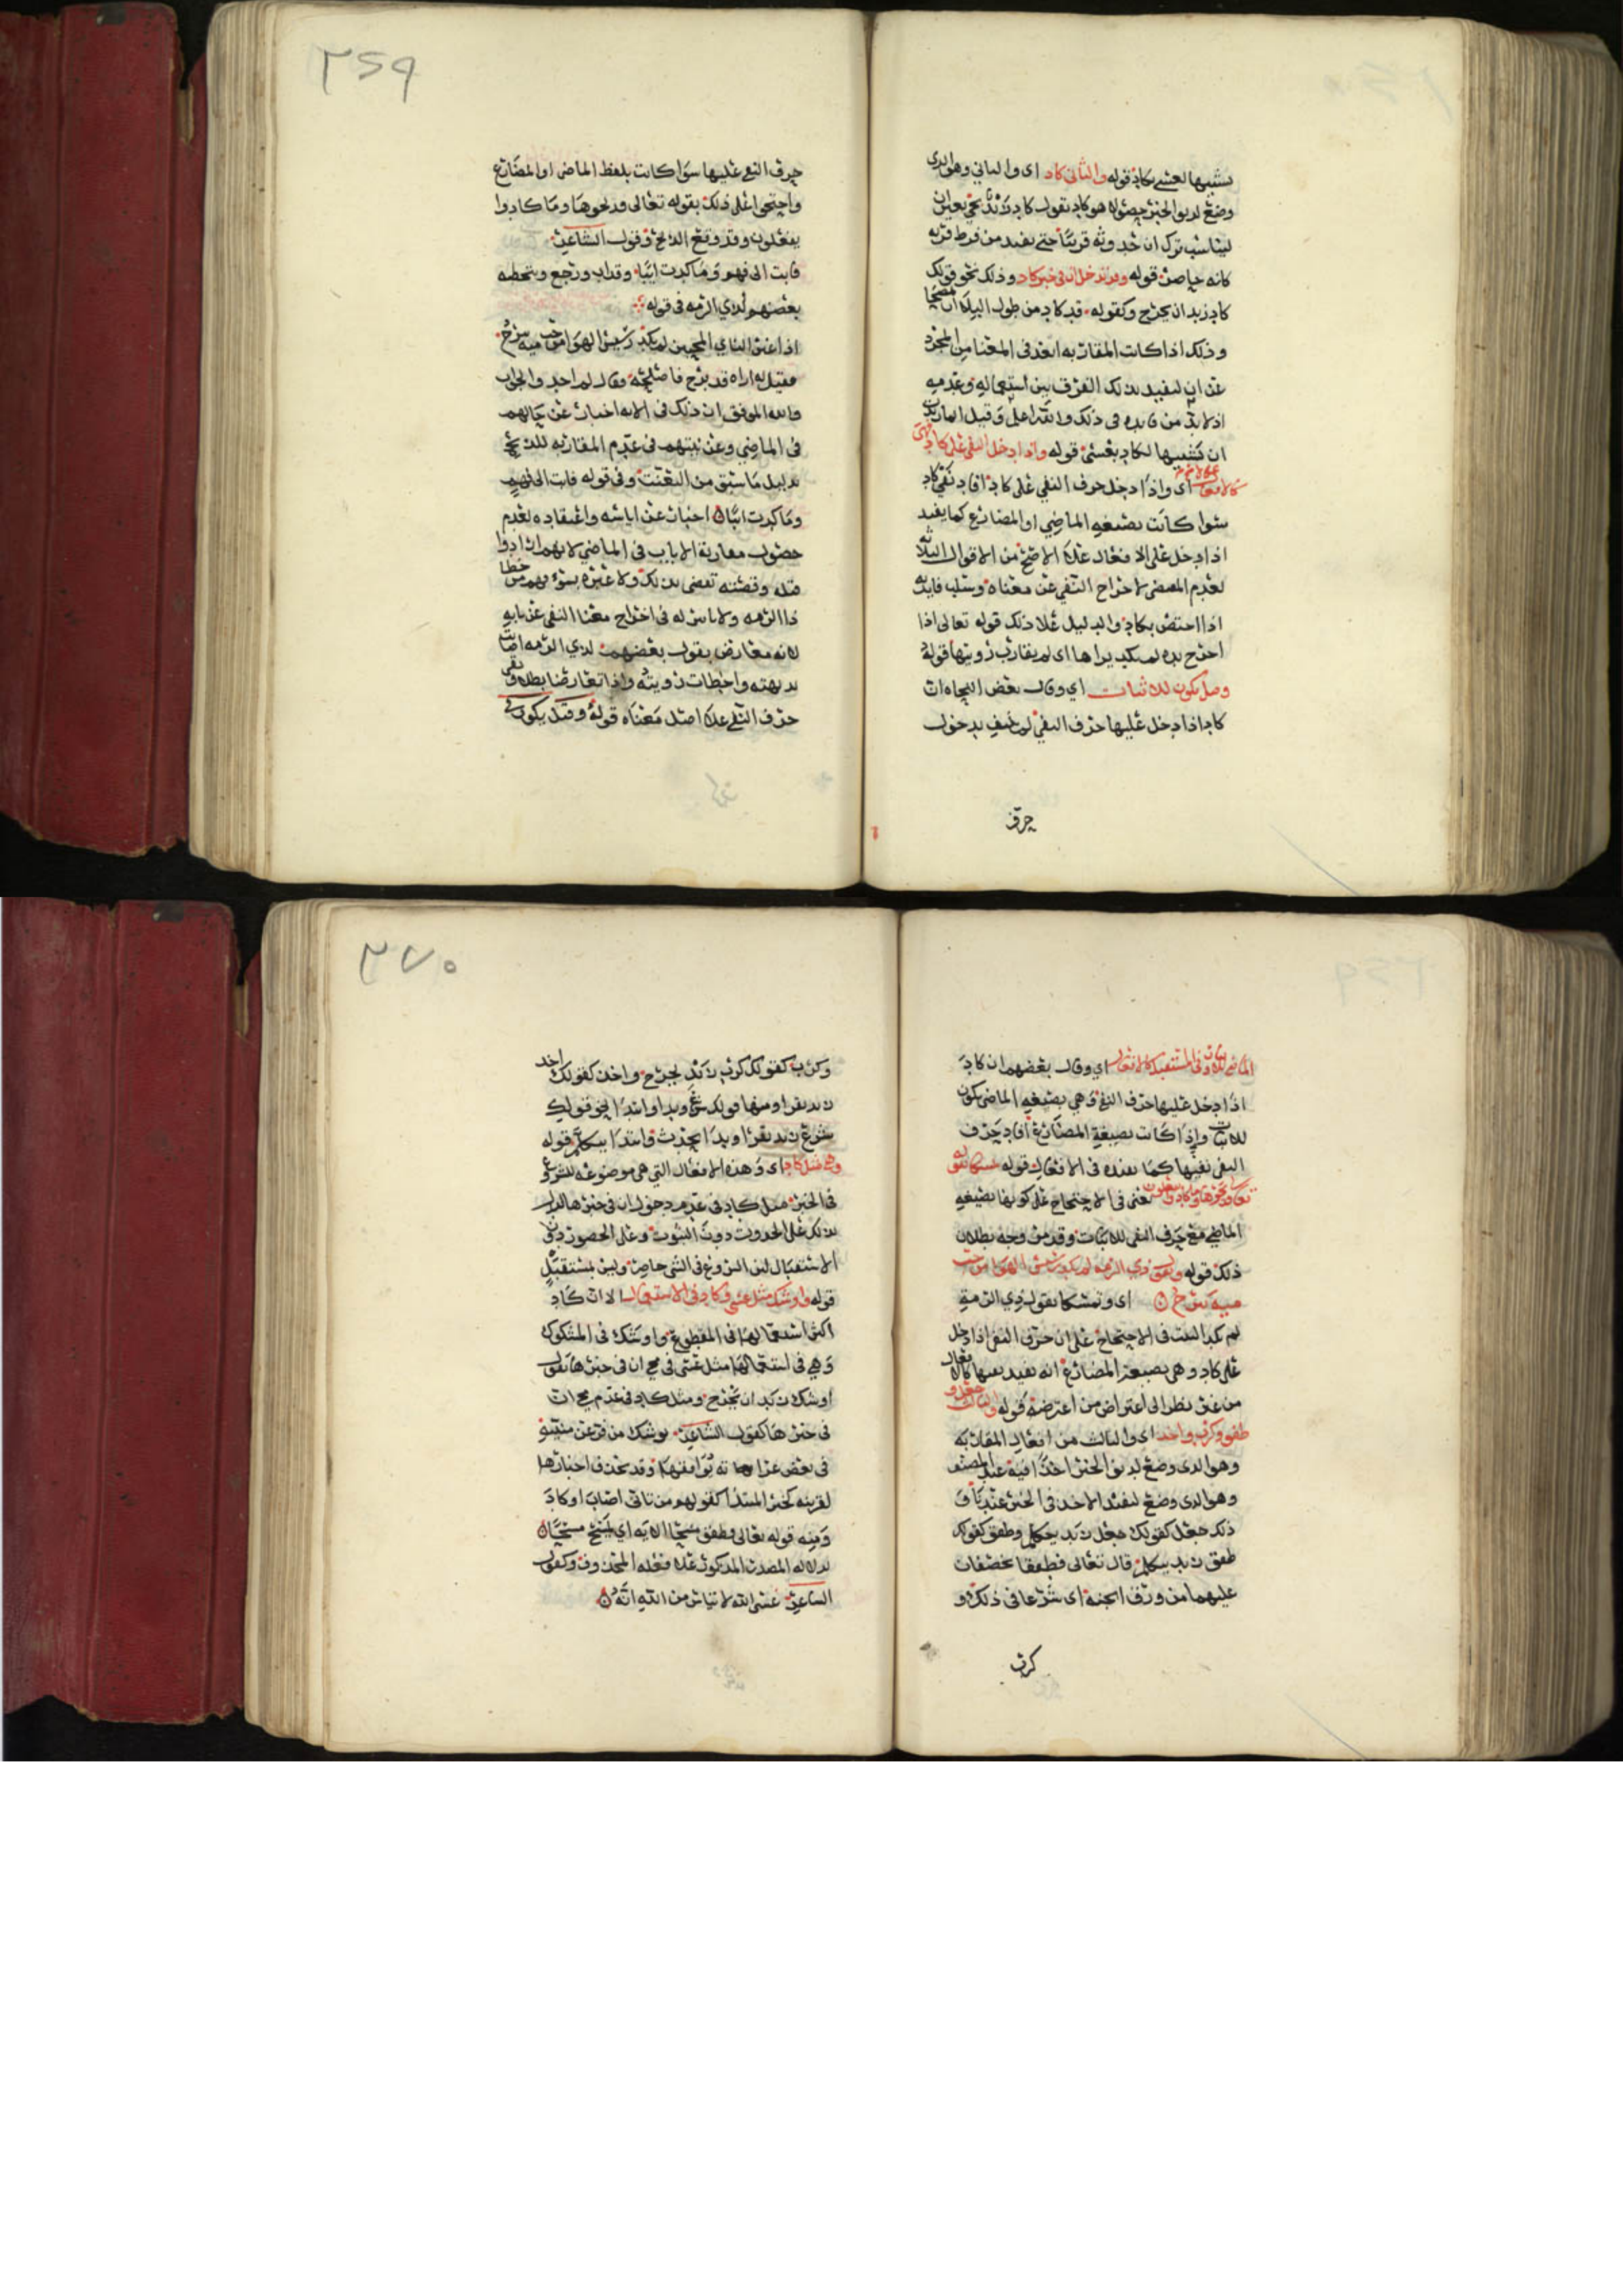 ٣٦٩
تشبيها لعسى بكاد قوله والثاني كاد اى والثاني وهو الذي
وضع لدنو الخبر حصوله هو كاد تقول كاد زيد يجي بغير ان
ليناسب ترك ان حدوثه قريبا حتى يفيد من فرط قربه
كانه حاصل قوله وقد تدخل ان في خبر كاد وذلك نحو قولك
كاد زيد ان يخرج وكقوله قد كاد من طول البلا ان يمصحا
وذلك اذا كانت المقاربه ابعد في المعنا من المجرد
عن ان ليفيد بذلك الفرق بين استعماله وعدمه
اذ لا بد من فايده في ذلك والله اعلم وقيل انما زيدت
ان تشبيها لكاد بعسى قوله واذا دخل النفي على كاد فهى
كالافعال على الاصح اى واذا دخل حرف النفي على كاد افاد نفي كاد
سوا كانت بصيغه الماضي او المضارع كما يفيد
اذا دخل على الافعال على الاصح من الاقوال الثلاثه
لعدم المقتضى لاخراج النفي عن معناه وسلب فايدته
اذا اختص بكاد والدليل على ذلك قوله تعالى اذا
اخرج يده لم يكد يراها اى لم يقارب رويتها قوله
وقيل يكون للاثبات اي وقال بعض النحاه ان
كاد اذا دخل عليها حرف النفي لم تنتف بدخول
حرف
حرف النفي عليها سوا كانت بلفظ الماضي او المضارع
واحتجوا على ذلك بقوله تعالى فذبحوها وما كادوا
يفعلون وقد وقع الذبح وقول الشاعر
فابت الى فهم وما كدت ايبا وقد اب ورجع وبتخطيه
بعضهم لذي الرمه في قوله
اذا غير الناي المحبين لم يكد رسيس الهوا من حب ميه يبرح
فقيل له اراه قد برح فاصلحه وقال لم اجد والجواب
والله الموفق ان ذلك في الايه اخبار عن حالهم
في الماضي وعن نيتهم في عدم المقاربه للذبح
بدليل ما سبق من التعنت وفي قوله فابت الى فهم
وما كدت ايبا اخبار عن اياسه واعتقاده لعدم
حصول مقاربة الاياب في الماضي لانهم ارادوا
قتله وقصته تقضى بذلك ولا عبره بسوء فهم من خطا
ذا الرمه ولا باس له في اخراج معنا النفي عن بابه
لانه معارض بقول بعضهم لذي الرمه اصابت
بديهته واخطات رويته واذا تعارضا بطلا وبقى
حرف النفي على اصل معناه قوله وقيل يكون في
٣٧٠
الماضي للاثبات وفي المستقبل كالافعال اي وقال بعضهم ان كاد
اذا دخل عليها حرف النفي وهي بصيغه الماضي يكون
للاثبات واذا كانت بصيغة المضارع افاد حرف
النفي نفيها كما يفيده في الافعال قوله تمسكا بقوله
تعالى فذبحوها وما كادوا يفعلون يعني في الاحتجاج على كونها بصيغه
الماضي مع حرف النفي للاثبات وقد مر وجه بطلان
ذلك قوله وبقول ذي الرمه لم يكد رسيس الهوا من حب
ميه يبرح اى وتمسكا بقول ذي الرمة
لم يكد البيت في الاحتجاج على ان حرف النفي اذا دخل
على كاد وهي بصيغة المضارع انه يفيد نفيها كالافعال
من غير نظر الى اعتراض من اعترضه قوله والثالث جعل و
طفق وكرب واخذ اى والثالث من افعال المقاربه
وهو الذي وضع لدنو الخبر اخذا فيه عند المصنف
وهو الذي وضع ليفيد الاخذ في الخبر عندنا و
ذلك جعل كقولك جعل زيد يتكلم وطفق كقولك
طفق زيد يتكلم قال تعالى فطفقا يخصفان
عليهما من ورق الجنه اى شرعا في ذلك و
كرب
وكرب كقولك كرب زيد يخرج واخذ كقولك اخذ
زيد يقرا ومنها قولك شرع وبدا وابتدا نحو قولك
شرع زيد يقرا وبدا يحدث وابتدا يتكلم قوله
وهي مثل كاد اى وهذه الافعال التي هي موضوعه للشروع
في الخبر مثل كاد في عدم دخول ان في خبرها لدلالة
بذلك على الحدوث دون الثبوت وعلى الحصور دون
الاستقبال لان الشروع في الشي حاصل وليس بمستقبل
قوله واوشك مثل عسى وكاد في الاستعمال الا ان كاد
اكثر استعمالها في المقطوع واوشك في المشكوك
وهي في استعمالها مثل عسى في مجي ان في خبرها تقول
اوشك زيد ان يخرج ومثل كاد في عدم مجي ان
في خبرها كقول الشاعر يوشك من فر من منيته
في بعض غراته يوافقها وقد تحذف اخبارها
لقرينه كخبر المبتدا كقولهم من تانى اصاب او كاد
ومنه قوله تعالى فطفق مسحا الايه اي يمسح مسحا
لدلاله المصدر المذكور على فعله المحذوف وكقول
الشاعر عسى الله لا تياس من الله انه